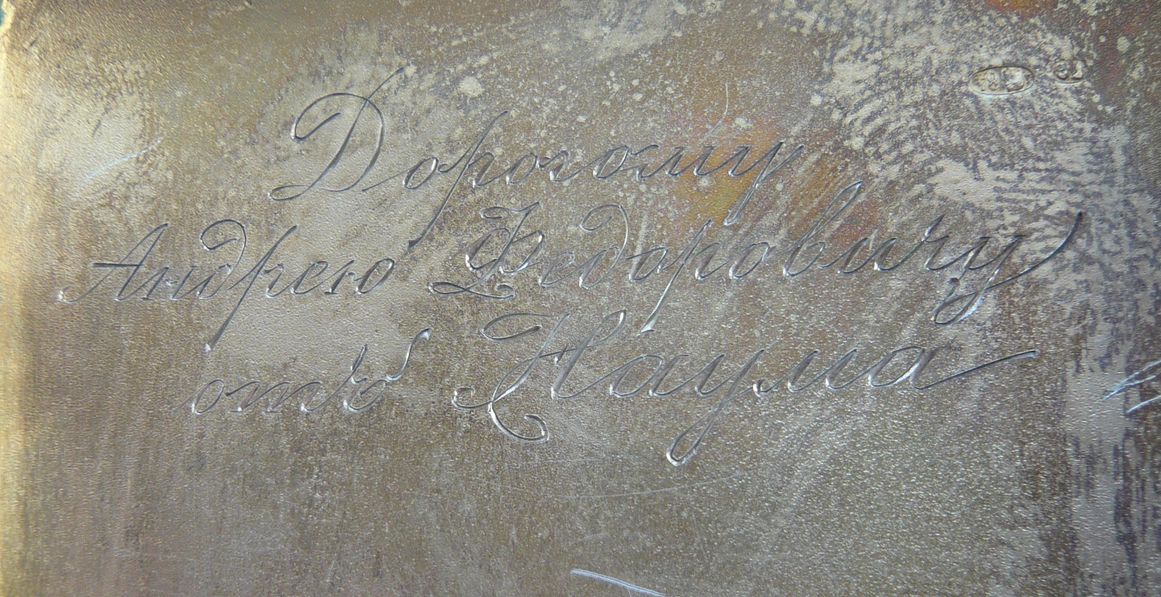 Дорогому
Андрею Федоровичу
отъ Наума